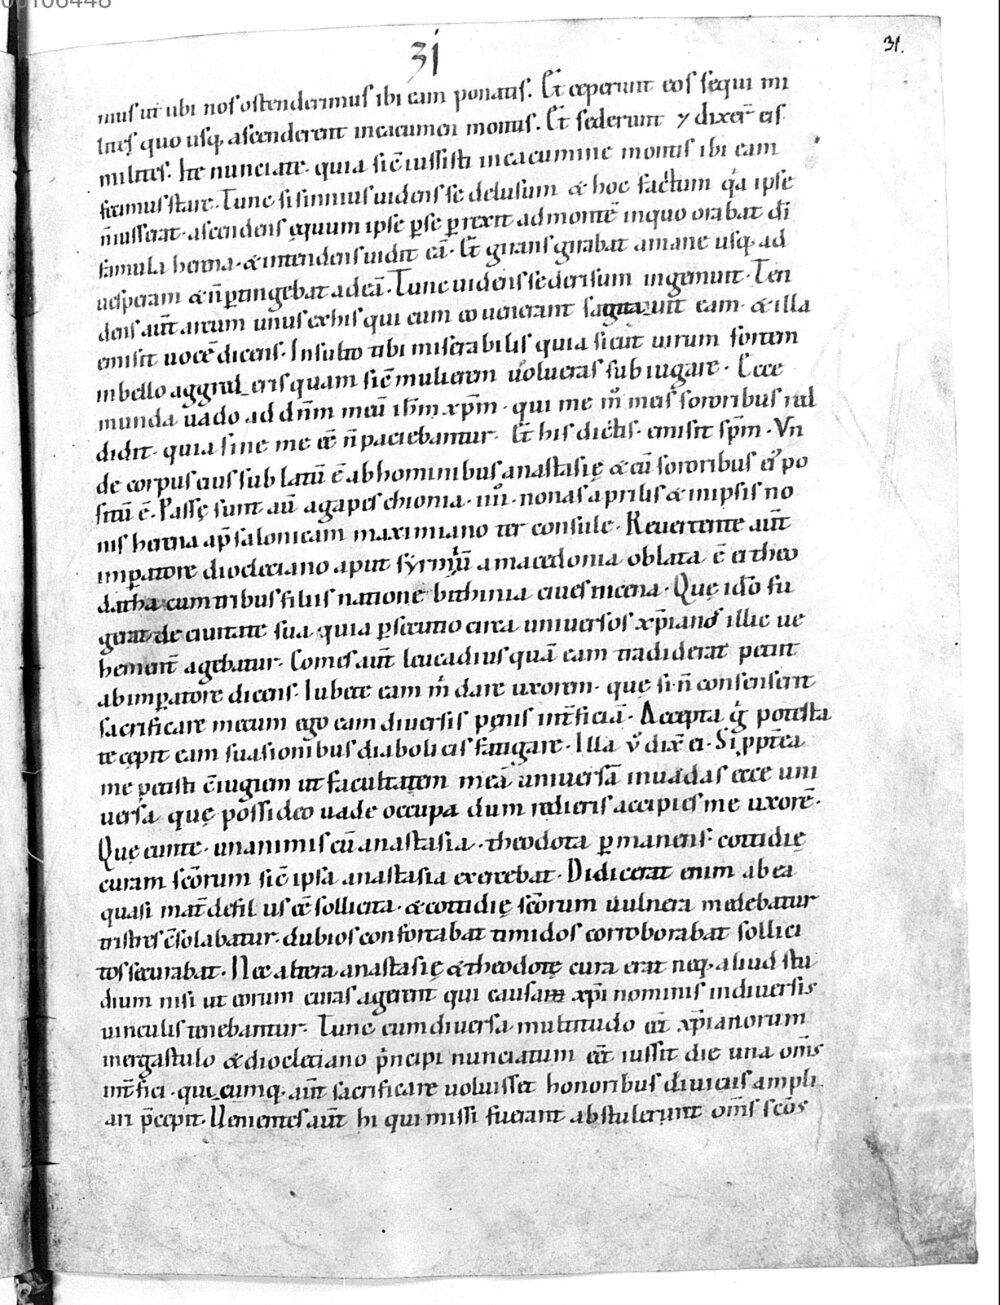 00106448
31
31.
mus ut ubi nos ostenderimus ibi eam ponatis. Et ceperunt eos sequi mi
lites quo usq; ascenderent in cacumen montis. Et sederunt ⁊ dixer̄ eis
milites. Ite nunciate. quia sic̄ iussisti in cacumine montis ibi eam
fecimus stare. Tunc sisinnius uidens se delusum & hoc factum qa ipse
n̄ iusserat. ascendens ęquum ipse p̱se p̱rexit ad montē in quo orabat dī
famula herena. & intendens uidit eā. Et girans girabat a mane usq; ad
uesperam & n̄ p̱tingebat ad eā. Tunc uidens se derisum ingemuit. Ten
dens aūt arcum unus ex his qui cum eo uenerant sagitta uit eam. & illa
emisit uocē dicens. Insulto tibi miserabilis quia sicut uirum fortem
in bello aggred eris quam sic̄ mulierem uolueras subiugare. Ecce
munda uado ad dn̄m meū ihm̄ xp̄m. qui me m̊ meis sororibus red
didit. quia sine me eē n̄ paciebantur. Et his dictis. emisit sp̄m. Vn
de corpus eius sublatū ē ab hominibus anastasię & cū sororibus ei᾽ po
sitū ē. Passę sunt aū agapes chionia. iiii. nonas aprilis & in ipsis no
nis herena ap̄ salonicam maximiano ter consule. Reuertente aūt
imp̱atore diocleciano aput syrmiū a macedonia oblata ē ei theo
datha cum tribus filiis natione bithinia ciues nicena. Quę ido fu
gerat de ciuitate sua quia p̱secutio circa uniuersos xp̄ianos illic ue
hement̄ agebatur. Comes aūt leucadius quā eam tradiderat petiit
ab imp̱atore dicens. Iubete eam m̄ dare uxorem. quę si n̄ consenserit
sacrificare mecum ego eam diuersis pęnis int̄ficiā. Accepta g̊ potesta
te cepit eam suasionibus diabolicis fatigare. Illa v̊ dix̄ ei. Si pp̱tēa
me petisti c̄iugium ut facultatem meā uniuersā inuadas ecce uni
uersa quę possideo uade occupa dum redieris accipies me uxorē.
Quę eunte. unanimis cū anastasia. theodota p̱manens. cottidię
curam sc̄orum sic̄ ipsa anastasia exercebat. Didicerat enim ab ea
quasi mat̄ de fil us eē sollicita. & cottidię sc̄orum uulnera medebatur
tristes c̄solabatur. dubios confortabat timidos corroborabat sollici
tos securabat. Nec altera anastasię & theodotę cura erat neq; aliud stu
dium nisi ut eorum curas agerent qui causam xp̄i nominis in diuersis
uinculis tenebantur. Tunc cum diuersa multitudo eēt xp̄ianorum
in ergastulo & diocleciano p̄ncipi nunciatum eēt iussit die una om̄s
int̄fici. qui cumq; aūt sacrificare uoluisset honoribus diuiciis ampli
ari p̄cepit. Uenientes aūt hi qui missi fuerant abstulerunt om̄s sc̄os